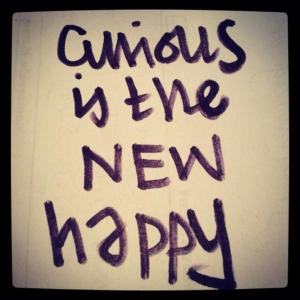 curious
is the
NEW
happy